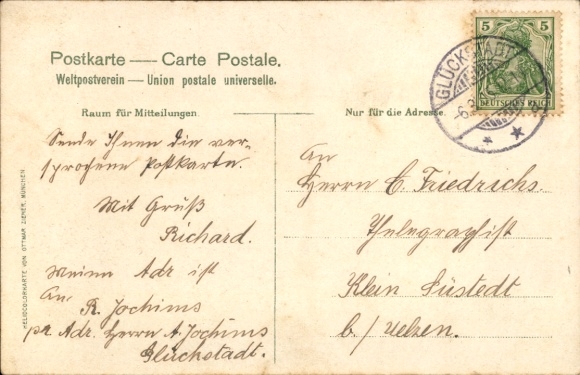 Postkarte — Carte Postale.
Weltpostverein – Union postale universelle.
Raum für Mitteilungen
Nur für die Adresse
5 5
DEUTSCHES REICH
GLÜCKSTADT
HELIOCOLORKARTE VON OTTMAR ZIEHER, MÜNCHEN
Sende Ihnen die ver-
sprochene Postkarte.
Mit Gruß
Richard.
Meine Adr ist
An
R. Jochims
pr. Adr. Herrn A. Jochims
Glückstadt.
An
Herrn C. Friedrichs
Thelegraphist
Klein Süstedt
b./ Uelzen.